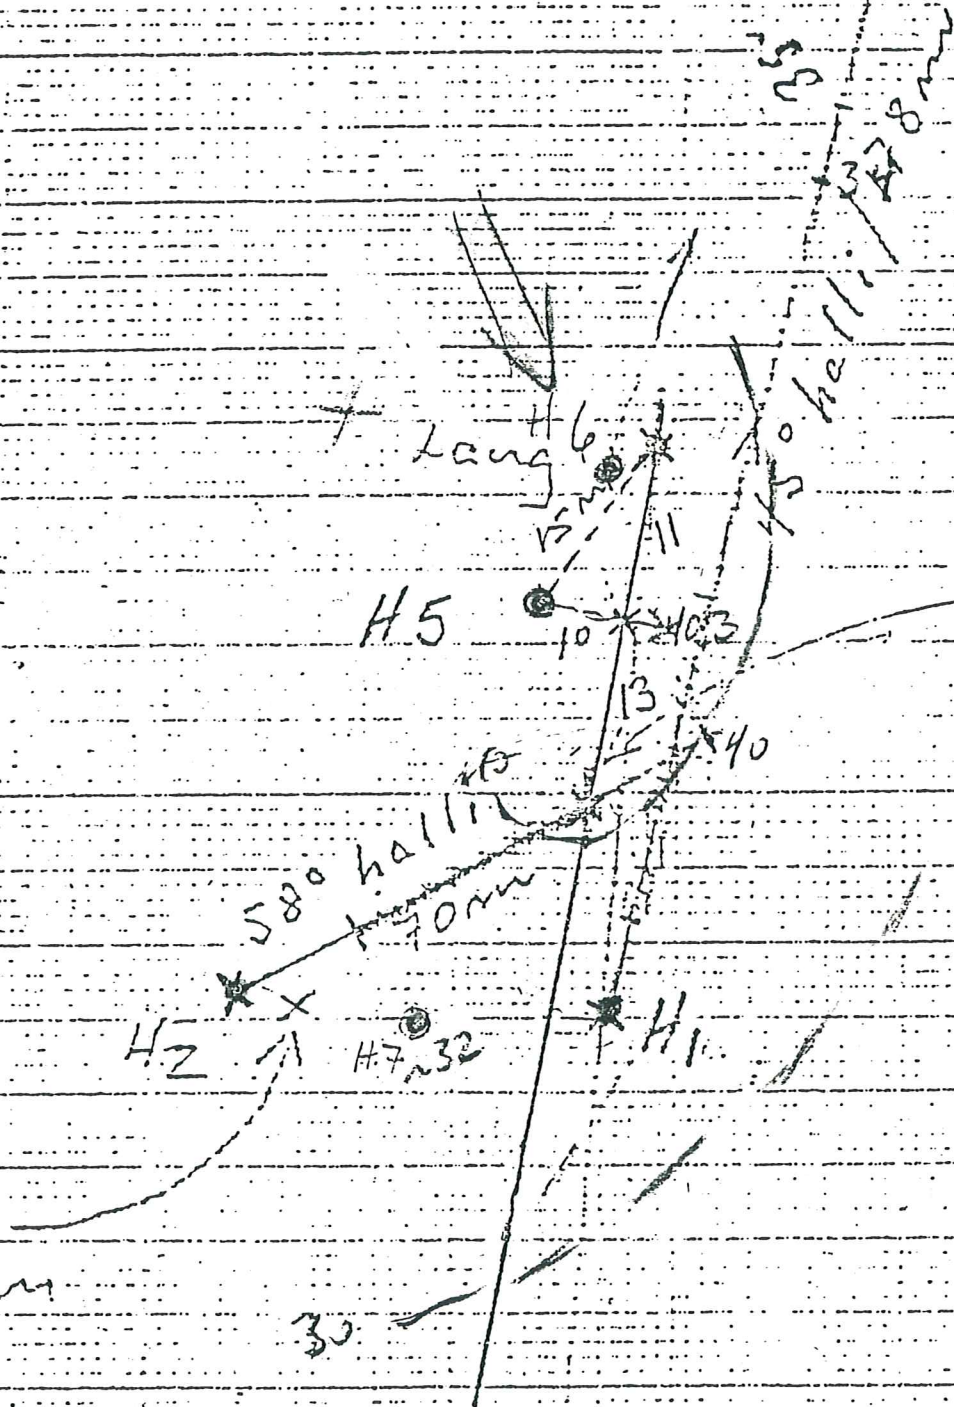 53
37
8 m
45° halli
H 6
Laug
15 m
11
H 5
10
403
13
40
58° halli
70 m
H2
H7 ~32
H1
30
m